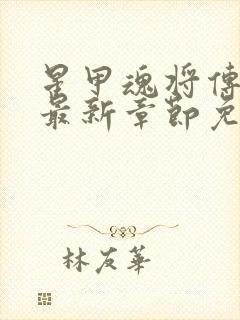 星甲魂将傳
最新章節免
林友華